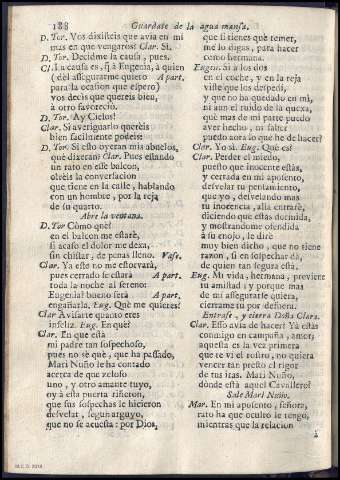 188
Guardate de la agua mansa.
D. Tor. Vos dixisteis que avia en mi
mas en que vengaros? Clar. Si.
D. Tor. Decidme la causa, pues.
Cl. La causa es, q̃ à Eugenia, à quien
(del assegurarme quiero A part.
para la ocasion que espero)
vos decis que quereis bien,
à otro favorecio.
D. Tor. Ay Cielos!
Clar. Si averiguarlo quereis
bien facilmente podeis:
D. Tor. Si esto oyeran mis abuelos,
què dixeran? Clar. Pues estando
un rato en esse balcon,
oireis la conversacion
que tiene en la calle, hablando
con un hombre, por la reja
de su quarto.
Abre la ventana.
D. Tor Còmo què?
en el balcon me estarè,
si acaso el dolor me dexa,
sin chistar, de penas lleno. Vase.
Clar. Ya este no me estorvarà,
pues cerrado le estarà A part.
toda la noche al sereno:
Eugenia! bueno serà A part.
engañarla. Eug. Què me quieres?
Clar Avisarte quanto eres
infeliz. Eug. En què?
Clar. En que està
mi padre tan sospechoso,
pues no sè què, que ha passado,
Mari Nuño le ha contado
acerca de que zeloso
uno, y otro amante tuyo,
oy à esta puerta riñeron,
que sus sospechas le hicieron
desvelar, segun arguyo,
que no se acuesta: por Dios,
que si tienes què temer,
me lo digas, para hacer
como hermana.
Eugen. Si à los dos
en el coche, y en la reja
viste que los despedì,
y que no ha quedado en mi,
ni aun el ruido de la quexa,
què mas de mi parte puedo
aver hecho, ni saber
puedo aora lo que he de hacer?
Clar. Yo sì. Eug. Què es?
Clar. Perder el miedo,
puesto que inocente estàs,
y cerrada en mi aposento,
desvelar tu pensamiento,
que yo, desvelando mas
tu inocencia, alla entrarè,
diciendo que estàs dormida,
y mostrandome ofendida
à su enojo, le dirè
muy bien dicho, que no tiene
razon, si en sospechar dà,
de quien tan segura està.
Eu. Mi vida, hermana, previene
tu amistad; y porque mas
de mi assegurarle quiera,
cierrame tu por defuera.
Entrase, y cierra Doña Clara.
Clar. Esso avia de hacer! Ya estàs
conmigo en campaña, amor;
aquesta es la vez primera
que te vi el rostro, no quiera
vencer tan presto el rigor
de tus iras. Mari Nuño,
dònde està aquel Cavallero?
Sale Mari Nuño.
Mar. En mi aposento, señora,
rato ha que oculto le tengo,
mientras que la relacion